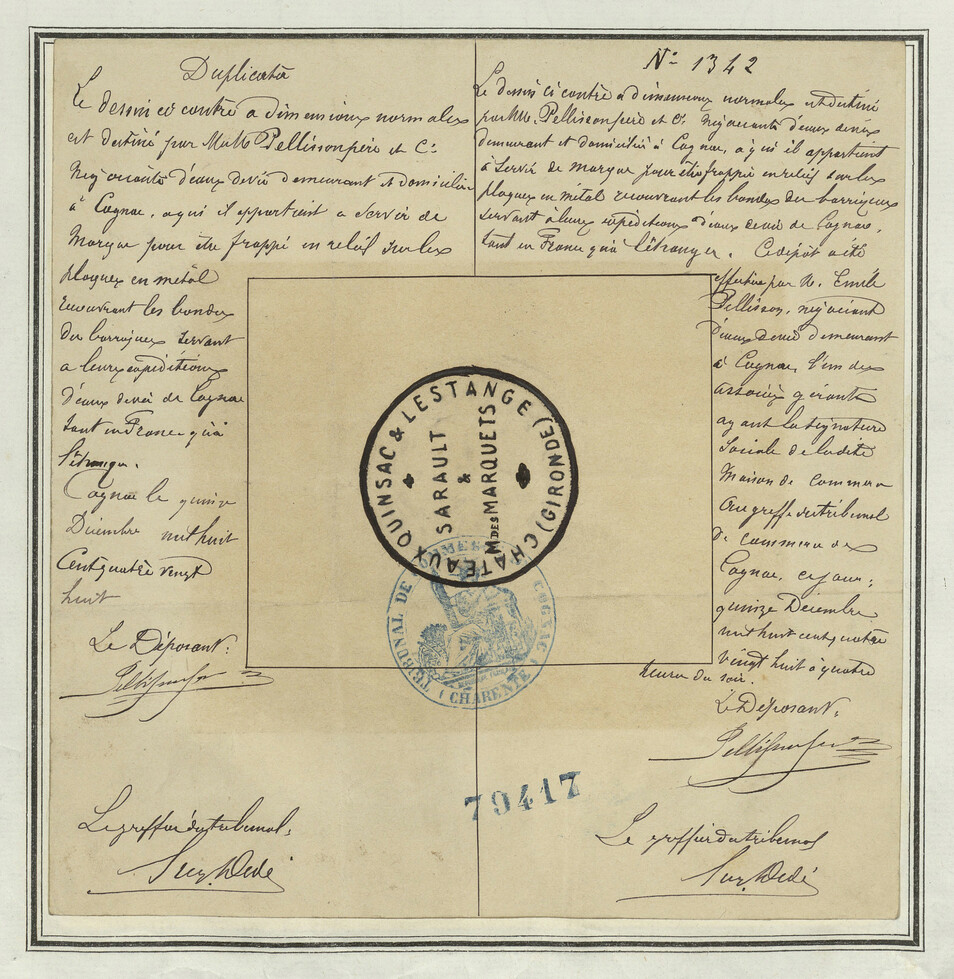 Duplicata
Le dessin ci contre a dimensions normales
est destiné par MM. Pellisson père et Cie
Négociants d'eaux de vie demeurant et domiciliés
à Cognac, a qui il appartient a servir de
Marque pour être frappé en relief sur les
plaques en métal
recouvrant les bondes
des barriques servant
a leurs expéditions
d'eaux de vie de Cognac
tant en France qu'à
l'étranger.
Cognac le quinze
Décembre mil huit
cent quatre vingt
huit
Le Déposant:
Pellisson père
Le greffier du tribunal:
N° 1342
Le dessin ci contre a dimensions normales est destiné
par MM. Pellisson père et Cie Négociants d'eaux de vie
demeurant et domiciliés à Cognac, a qui il appartient
à servir de marque pour être frappé en relief sur les
plaques en métal recouvrant les bondes des barriques
servant à leurs expéditions d'eaux de vie de Cognac,
tant en France qu'à l'étranger. Ce dépôt a été
effectué par M. Emile
Pellisson, négociant
d'eaux de vie demeurant
à Cognac, l'un des
associés gérants
ayant la signature
sociale de la dite
Maison de commerce
au greffe du tribunal
de commerce de
Cognac, ce jour,
quinze Décembre
mil huit cent quatre
vingt huit à quatre
heures du soir.
Le Déposant:
Pellisson père
Le greffier du tribunal
CHATEAUX QUINSAC & LESTANGE (GIRONDE)
SARAULT
&
M DES MARQUETS
TRIBUNAL DE COMMERCE COGNAC
(CHARENTE)
79417